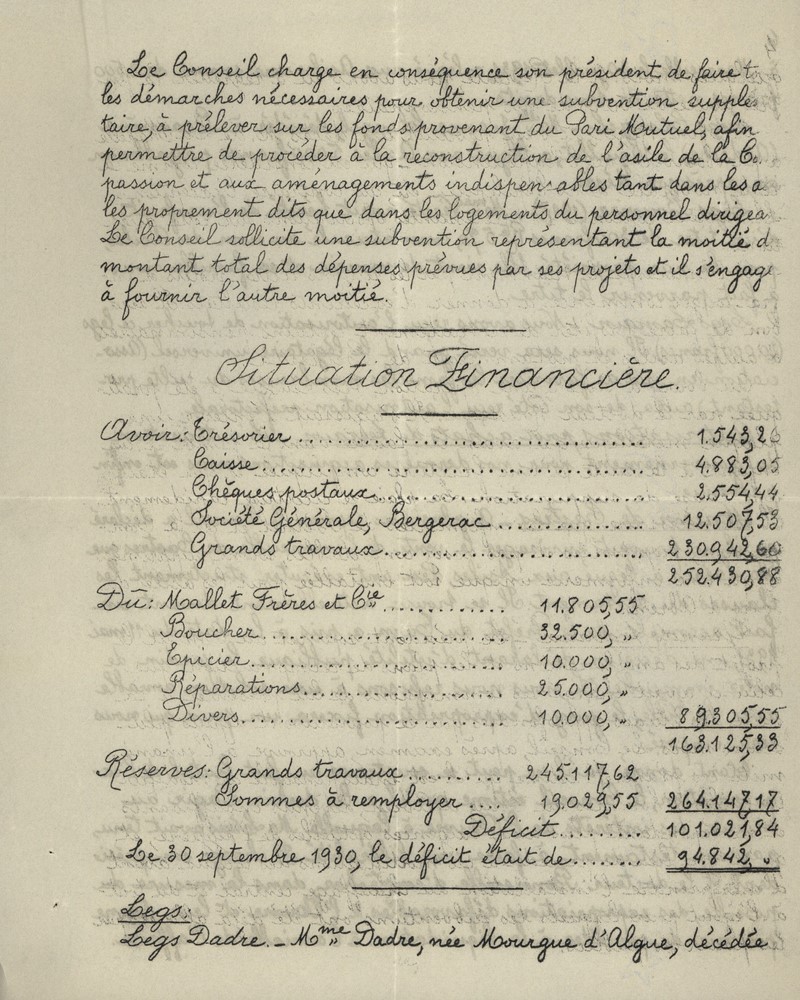 Le Conseil charge en conséquence son président de faire t
les démarches nécessaires pour obtenir une subvention supplé
taire, à prélever sur les fonds provenant du Pari Mutuel, afin
permettre de procéder à la reconstruction de l'asile de la Co
passion et aux aménagements indispensables tant dans les a
les proprement dits que dans les logements du personnel dirigea
Le Conseil sollicite une subvention représentant la moitié d
montant total des dépenses prévues par ses projets et il s'engage
à fournir l'autre moitié.
Situation Financière.
Avoir: Trésorier ........ 1.543,26
Caisse ........ 4.883,05
Chèques postaux ........ 2.554,44
Société Générale, Bergerac ........ 12.507,53
Grands travaux ........ 230.942,60
252.430,88
Dû: Mallet Frères et Cie ........ 11.805,55
Boucher ........ 32.500, "
Epicier ........ 10.000, "
Réparations ........ 25.000, "
Divers ........ 10.000, " 89.305,55
163.125,33
Réserves: Grands travaux ........ 245.117,62
Sommes à remployer .... 19.029,55 264.147,17
Déficit ........ 101.021,84
Le 30 septembre 1930, le déficit était de ........ 94.842, "
Legs:
Legs Dadre. _ Mme Dadre, née Mourgue d'Algue, décédée